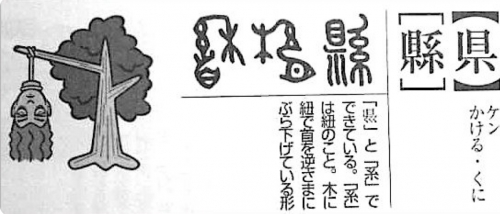 【県】
[縣]
ケン
かける・くに
「県」と「系」で
できている。「系」
は紐のこと。木に
紐で首を逆さまに
ぶら下げている形